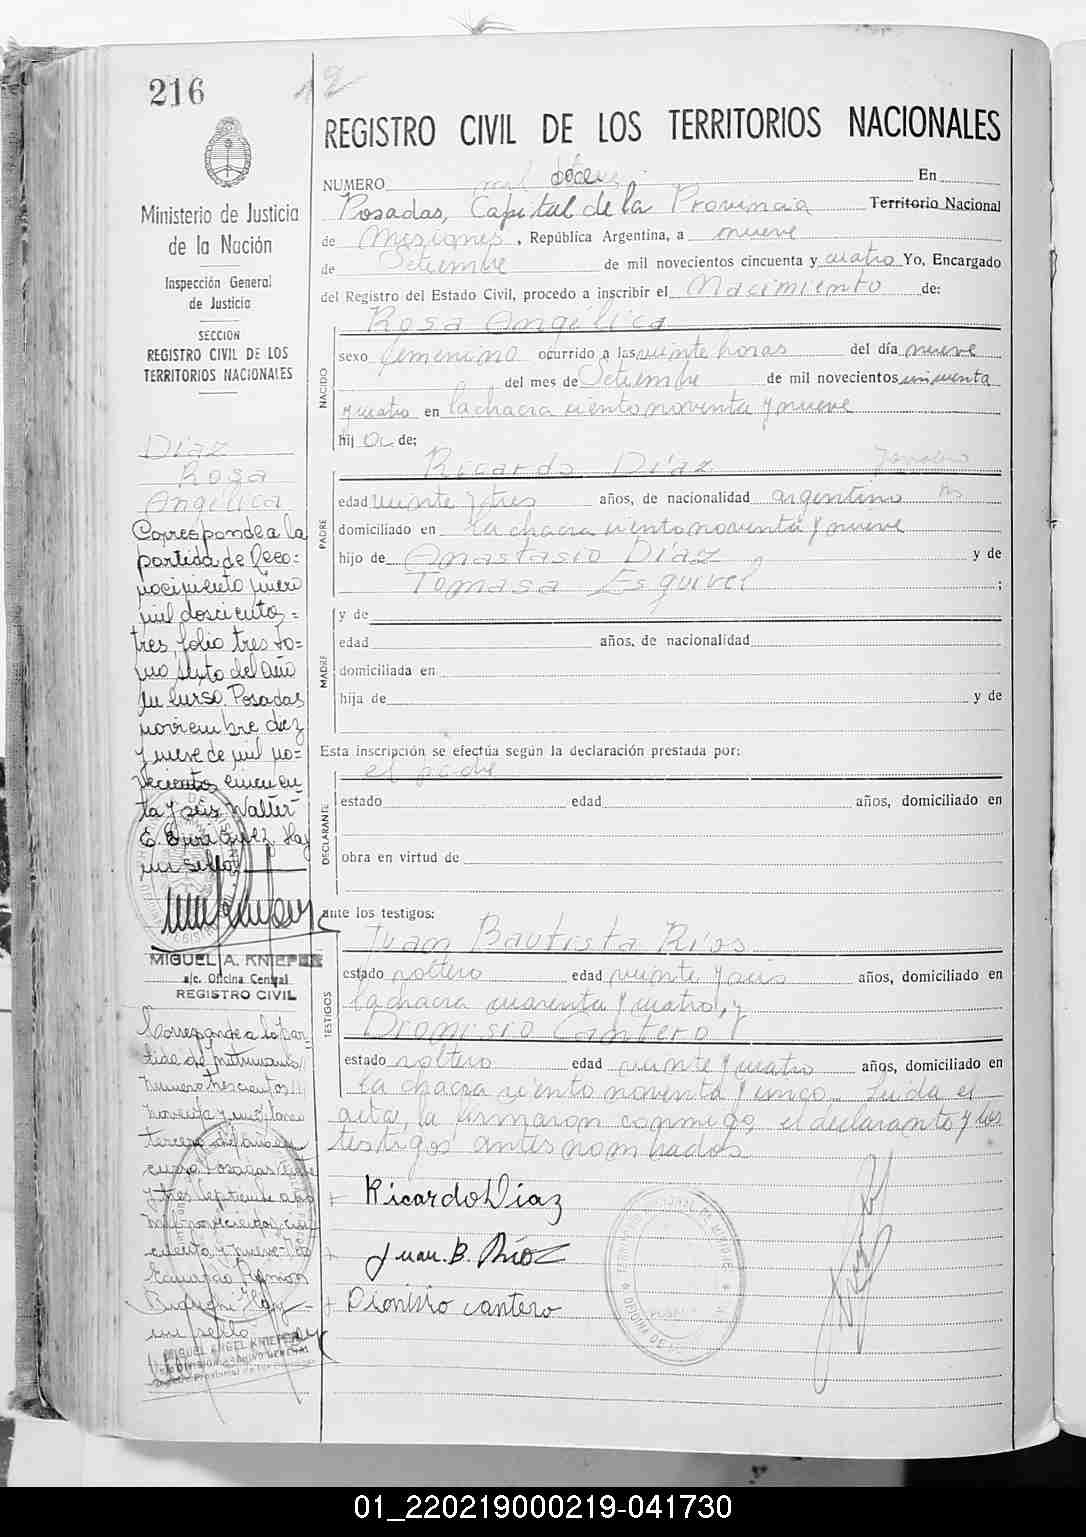 216
12
REGISTRO CIVIL DE LOS TERRITORIOS NACIONALES
Ministerio de Justicia
de la Nación
Inspección General
de Justicia
SECCION
REGISTRO CIVIL DE LOS
TERRITORIOS NACIONALES
Diaz
Rosa
Angélica
Corresponde a la
partida de Reco=
nocimiento número
mil doscientos=
tres folio tres to=
mo sexto del año
en curso. Posadas
noviembre diez
y nueve de mil no=
vecientos cincuen
ta y seis Walter
E. Hay
un sello.
MIGUEL A. KNIEPER
a/c. Oficina Central
REGISTRO CIVIL
Corresponde a la par-
tida de matrimonio
número trescientos
noventa y uno, tomo
tercero del año en
curso. Posadas
y tres septiembre de
mil novecientos cin
cuenta y nueve.
Eduardo Ramon
Hay
un sello
MIGUEL ANGEL KNIEPER
NUMERO mil doce En
Posadas, Capital de la Provincia Territorio Nacional
de Misiones, República Argentina, a nueve
de Setiembre de mil novecientos cincuenta y cuatro Yo, Encargado
del Registro del Estado Civil, procedo a inscribir el Nacimiento de:
NACIDO
Rosa Angélica
sexo femenino ocurrido a las veinte horas del día nueve
del mes de Setiembre de mil novecientos cincuenta
y cuatro en la chacra ciento noventa y nueve
hij a de:
PADRE
Ricardo Díaz
edad veinte y tres años, de nacionalidad argentino
domiciliado en la chacra ciento noventa y nueve
hijo de Anastasio Díaz y de
Tomasa Esquivel ;
MADRE
y de
edad años, de nacionalidad
domiciliada en
hija de y de
Esta inscripción se efectúa según la declaración prestada por:
DECLARANTE
el padre
estado edad años, domiciliado en
obra en virtud de
ante los testigos:
TESTIGOS
Juan Bautista Ríos
estado soltero edad veinte y seis años, domiciliado en
la chacra cuarenta y cuatro, y
Dionisio Cantero
estado soltero edad veinte y cuatro años, domiciliado en
la chacra ciento noventa y cinco. Leida el
acta, la firmaron conmigo, el declarante y los
testigos antes nombrados
Ricardo Diaz
Juan. B. Rios
Dionisio cantero
01_220219000219-041730